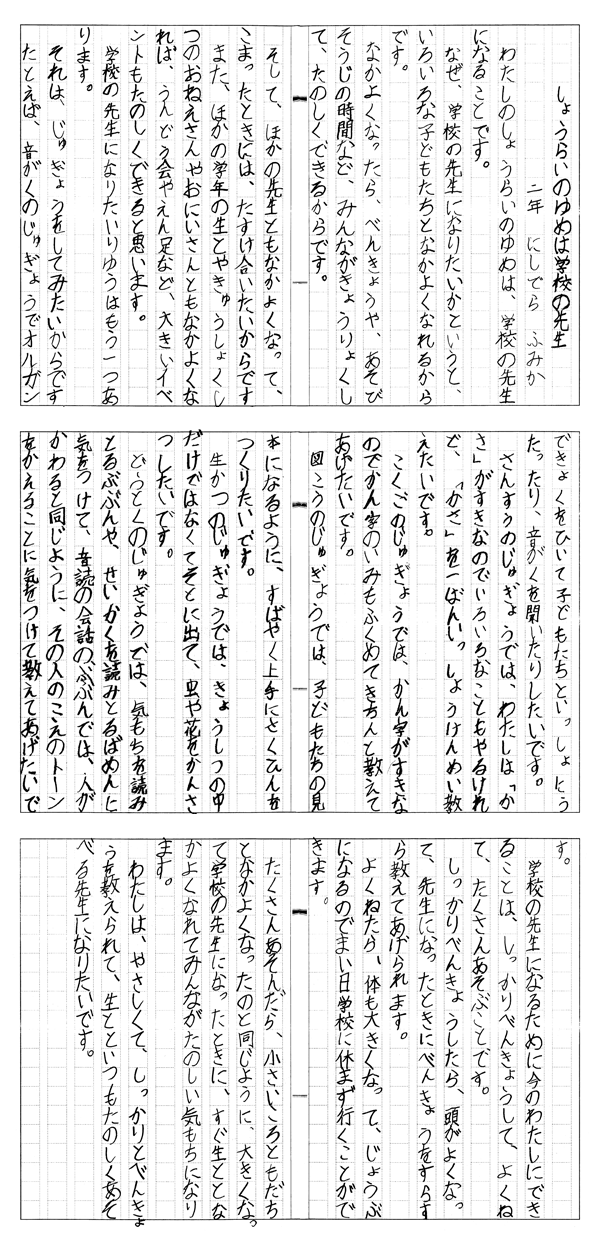 しょうらいのゆめは学校の先生
二年　にしでら　ふみか
わたしのしょうらいのゆめは、学校の先生
になることです。
なぜ、学校の先生になりたいかというと、
いろいろな子どもたちとなかよくなれるから
です。
なかよくなったら、べんきょうや、あそび
そうじの時間など、みんながきょうりょくし
て、たのしくできるからです。
そして、ほかの先生ともなかよくなって、
こまったときには、たすけ合いたいからです
また、ほかの学年の生とやきゅうしょくし
つのおねえさんやおにいさんともなかよくな
れば、うんどう会やえん足など、大きいイベ
ントもたのしくできると思います。
学校の先生になりたいりゆうはもう一つあ
ります。
それは、じゅぎょうをしてみたいからです
たとえば、音がくのじゅぎょうでオルガン
できょくをひいて子どもたちといっしょにう
たったり、音がくを聞いたりしたいです。
さんすうのじゅぎょうでは、わたしは「か
さ」がすきなのでいろいろなこともやるけれ
ど、「かさ」を一ばんいっしょうけんめい教
えたいです。
こくごのじゅぎょうでは、かん字がすきな
のでかん字のいみもふくめてきちんと教えて
あげたいです。
図こうのじゅぎょうでは、子どもたちの見
本になるように、すばやく上手にさくひんを
つくりたいです。
生かつのじゅぎょうでは、きょうしつの中
だけではなくてそとに出て、虫や花をかんさ
つしたいです。
どうとくのじゅぎょうでは、気もちを読み
とるぶぶんや、せいかくを読みとるばめんに
気をつけて、音読の会話のぶぶんでは、人が
かわると同じように、その人のこえのトーン
をかえることに気をつけて教えてあげたいで
す。
学校の先生になるために今のわたしにでき
ることは、しっかりべんきょうして、よくね
て、たくさんあそぶことです。
しっかりべんきょうしたら、頭がよくなっ
て、先生になったときにべんきょうをすらす
ら教えてあげられます。
よくねたら、体も大きくなって、じょうぶ
になるのでまい日学校に休まず行くことがで
きます。
たくさんあそんだら、小さいころともだち
となかよくなったのと同じように、大きくなっ
て学校の先生になったときに、すぐ生ととな
かよくなれてみんながたのしい気もちになり
ます。
わたしは、やさしくて、しっかりとべんきょ
うを教えられて、生とといつもたのしくあそ
べる先生になりたいです。